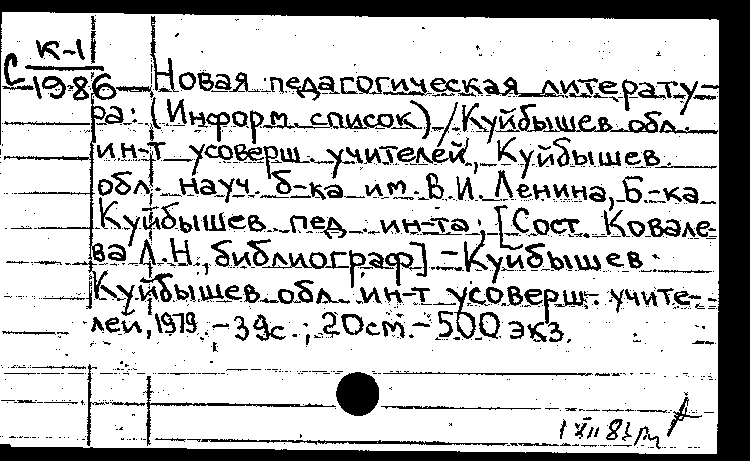 С К-1
1986 Новая педагогическая литерату-
ра: (Информ. список) / Куйбышев обл.
ин-т усоверш. учителей, Куйбышев.
обл. науч. б-ка им. В.И. Ленина, Б-ка
Куйбышев пед. ин-та; [Сост. Ковале-
ва Л.Н., библиограф] - Куйбышев:
Куйбышев. обл. ин-т усоверш. учите-
лей, 1979. - 39с.; 20см. - 500 экз.